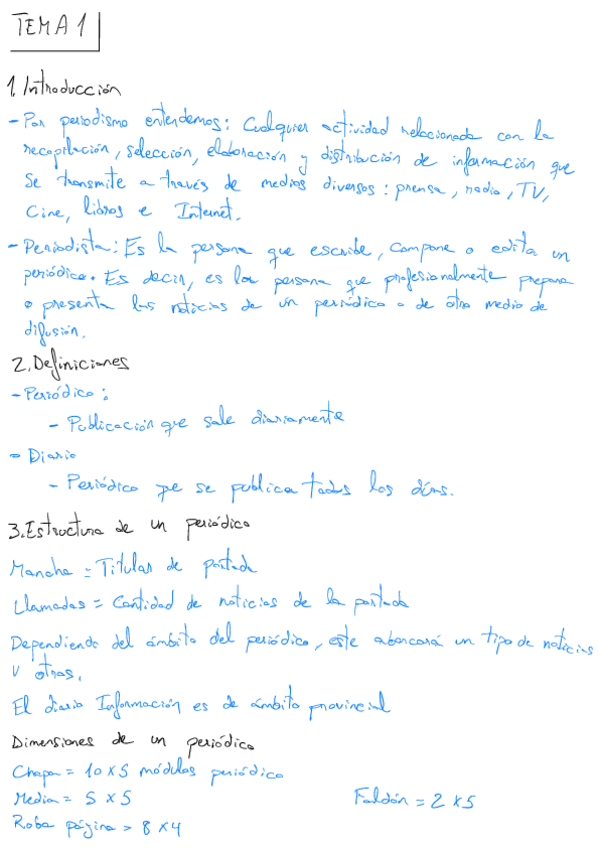 TEMA 1
1. Introducción
- Por periodismo entendemos: Cualquier actividad relacionada con la
recopilación, selección, elaboración y distribución de información que
se transmite a través de medios diversos: prensa, radio, TV,
Cine, libros e Internet.
- Periodista: Es la persona que escribe, compone o edita un
periódico. Es decir, es la persona que profesionalmente prepara
o presenta las noticias de un periódico o de otro medio de
difusión.
2. Definiciones
- Periódico:
- Publicación que sale diariamente
- Diario
- Periódico que se publica todos los días.
3. Estructura de un periódico
Mancha = Titular de portada
Llamadas = Cantidad de noticias de la portada
Dependiendo del ámbito del periódico, este abarcará un tipo de noticias
u otras.
El diario Información es de ámbito provincial
Dimensiones de un periódico
Chapa = 10 x 5 módulos periódico
Media = 5 x 5 Faldón = 2 x 5
Roba página = 8 x 4